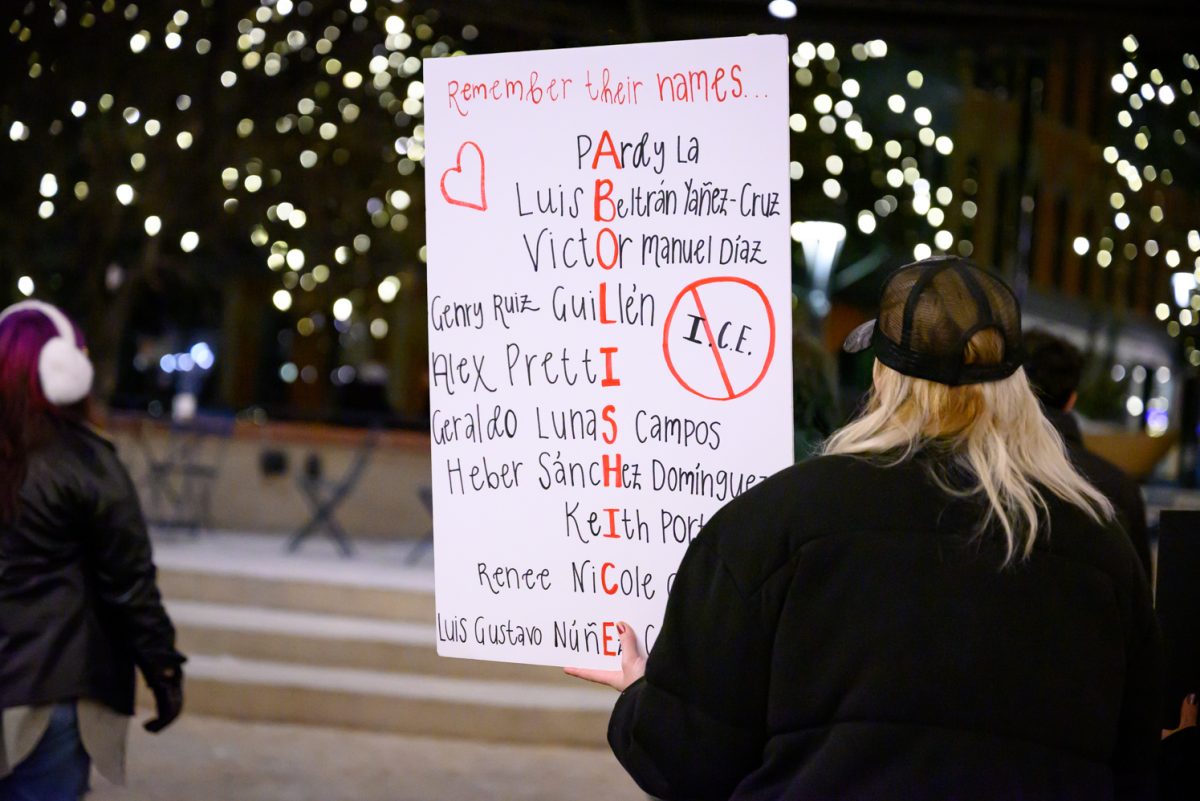 Remember their names...
PArdy La
Luis Beltrán Yañez-Cruz
VictOr Manuel Díaz
Genry Ruiz GuiLlén
I.C.E.
Alex PrettI
Geraldo LunaS Campos
Heber SáncHez Domínguez
KeIth
Renee NiCole
Luis Gustavo NúñEz